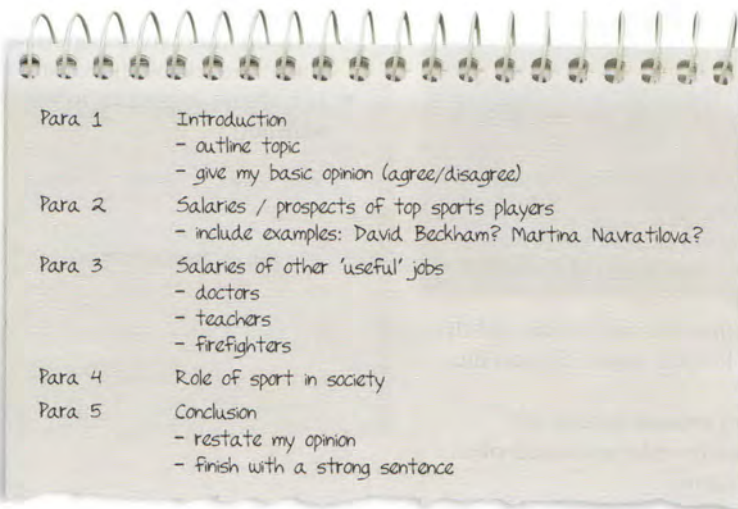 Para 1 Introduction
- outline topic
- give my basic opinion (agree/disagree)
Para 2 Salaries / prospects of top sports players
- include examples: David Beckham? Martina Navratilova?
Para 3 Salaries of other 'useful' jobs
- doctors
- teachers
- firefighters
Para 4 Role of sport in society
Para 5 Conclusion
- restate my opinion
- finish with a strong sentence